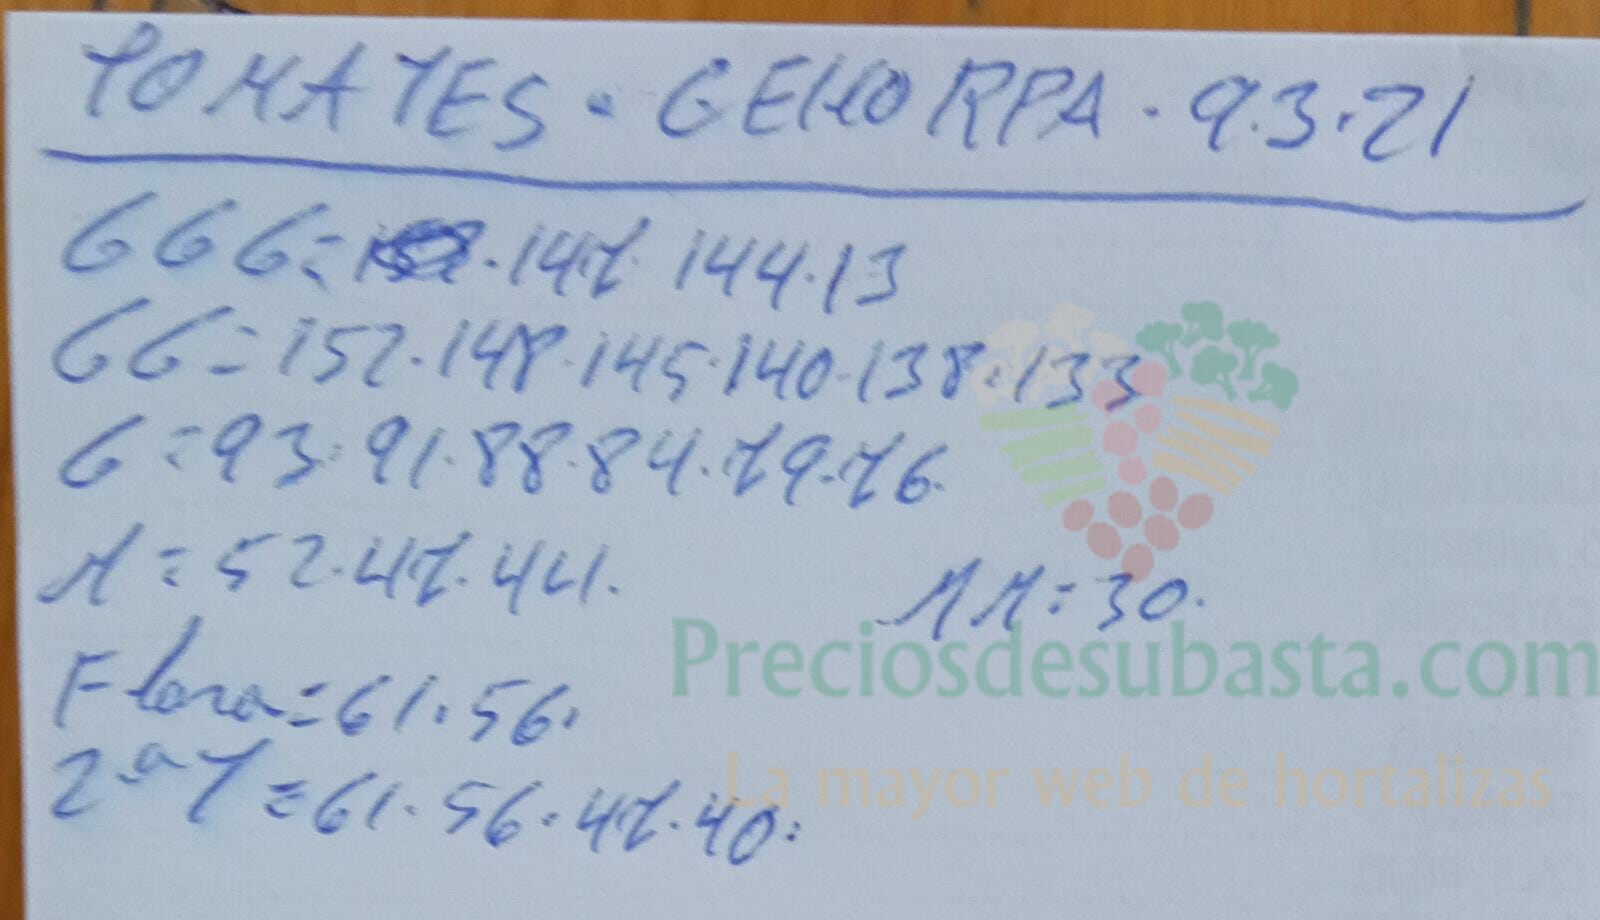 TOMATES · GEHORPA · 9.3.21
GGG = · 147 144 · 13
GG = 152 · 148 · 145 · 140 · 138 · 133
G = 93 · 91 · 88 · 84 · 79 · 76.
M = 52 · 47 · 44. MM = 30.
Flora = 61 · 56.
2ª T = 61 · 56 · 47 · 40.
Preciosdesubasta.com
La mayor web de hortalizas